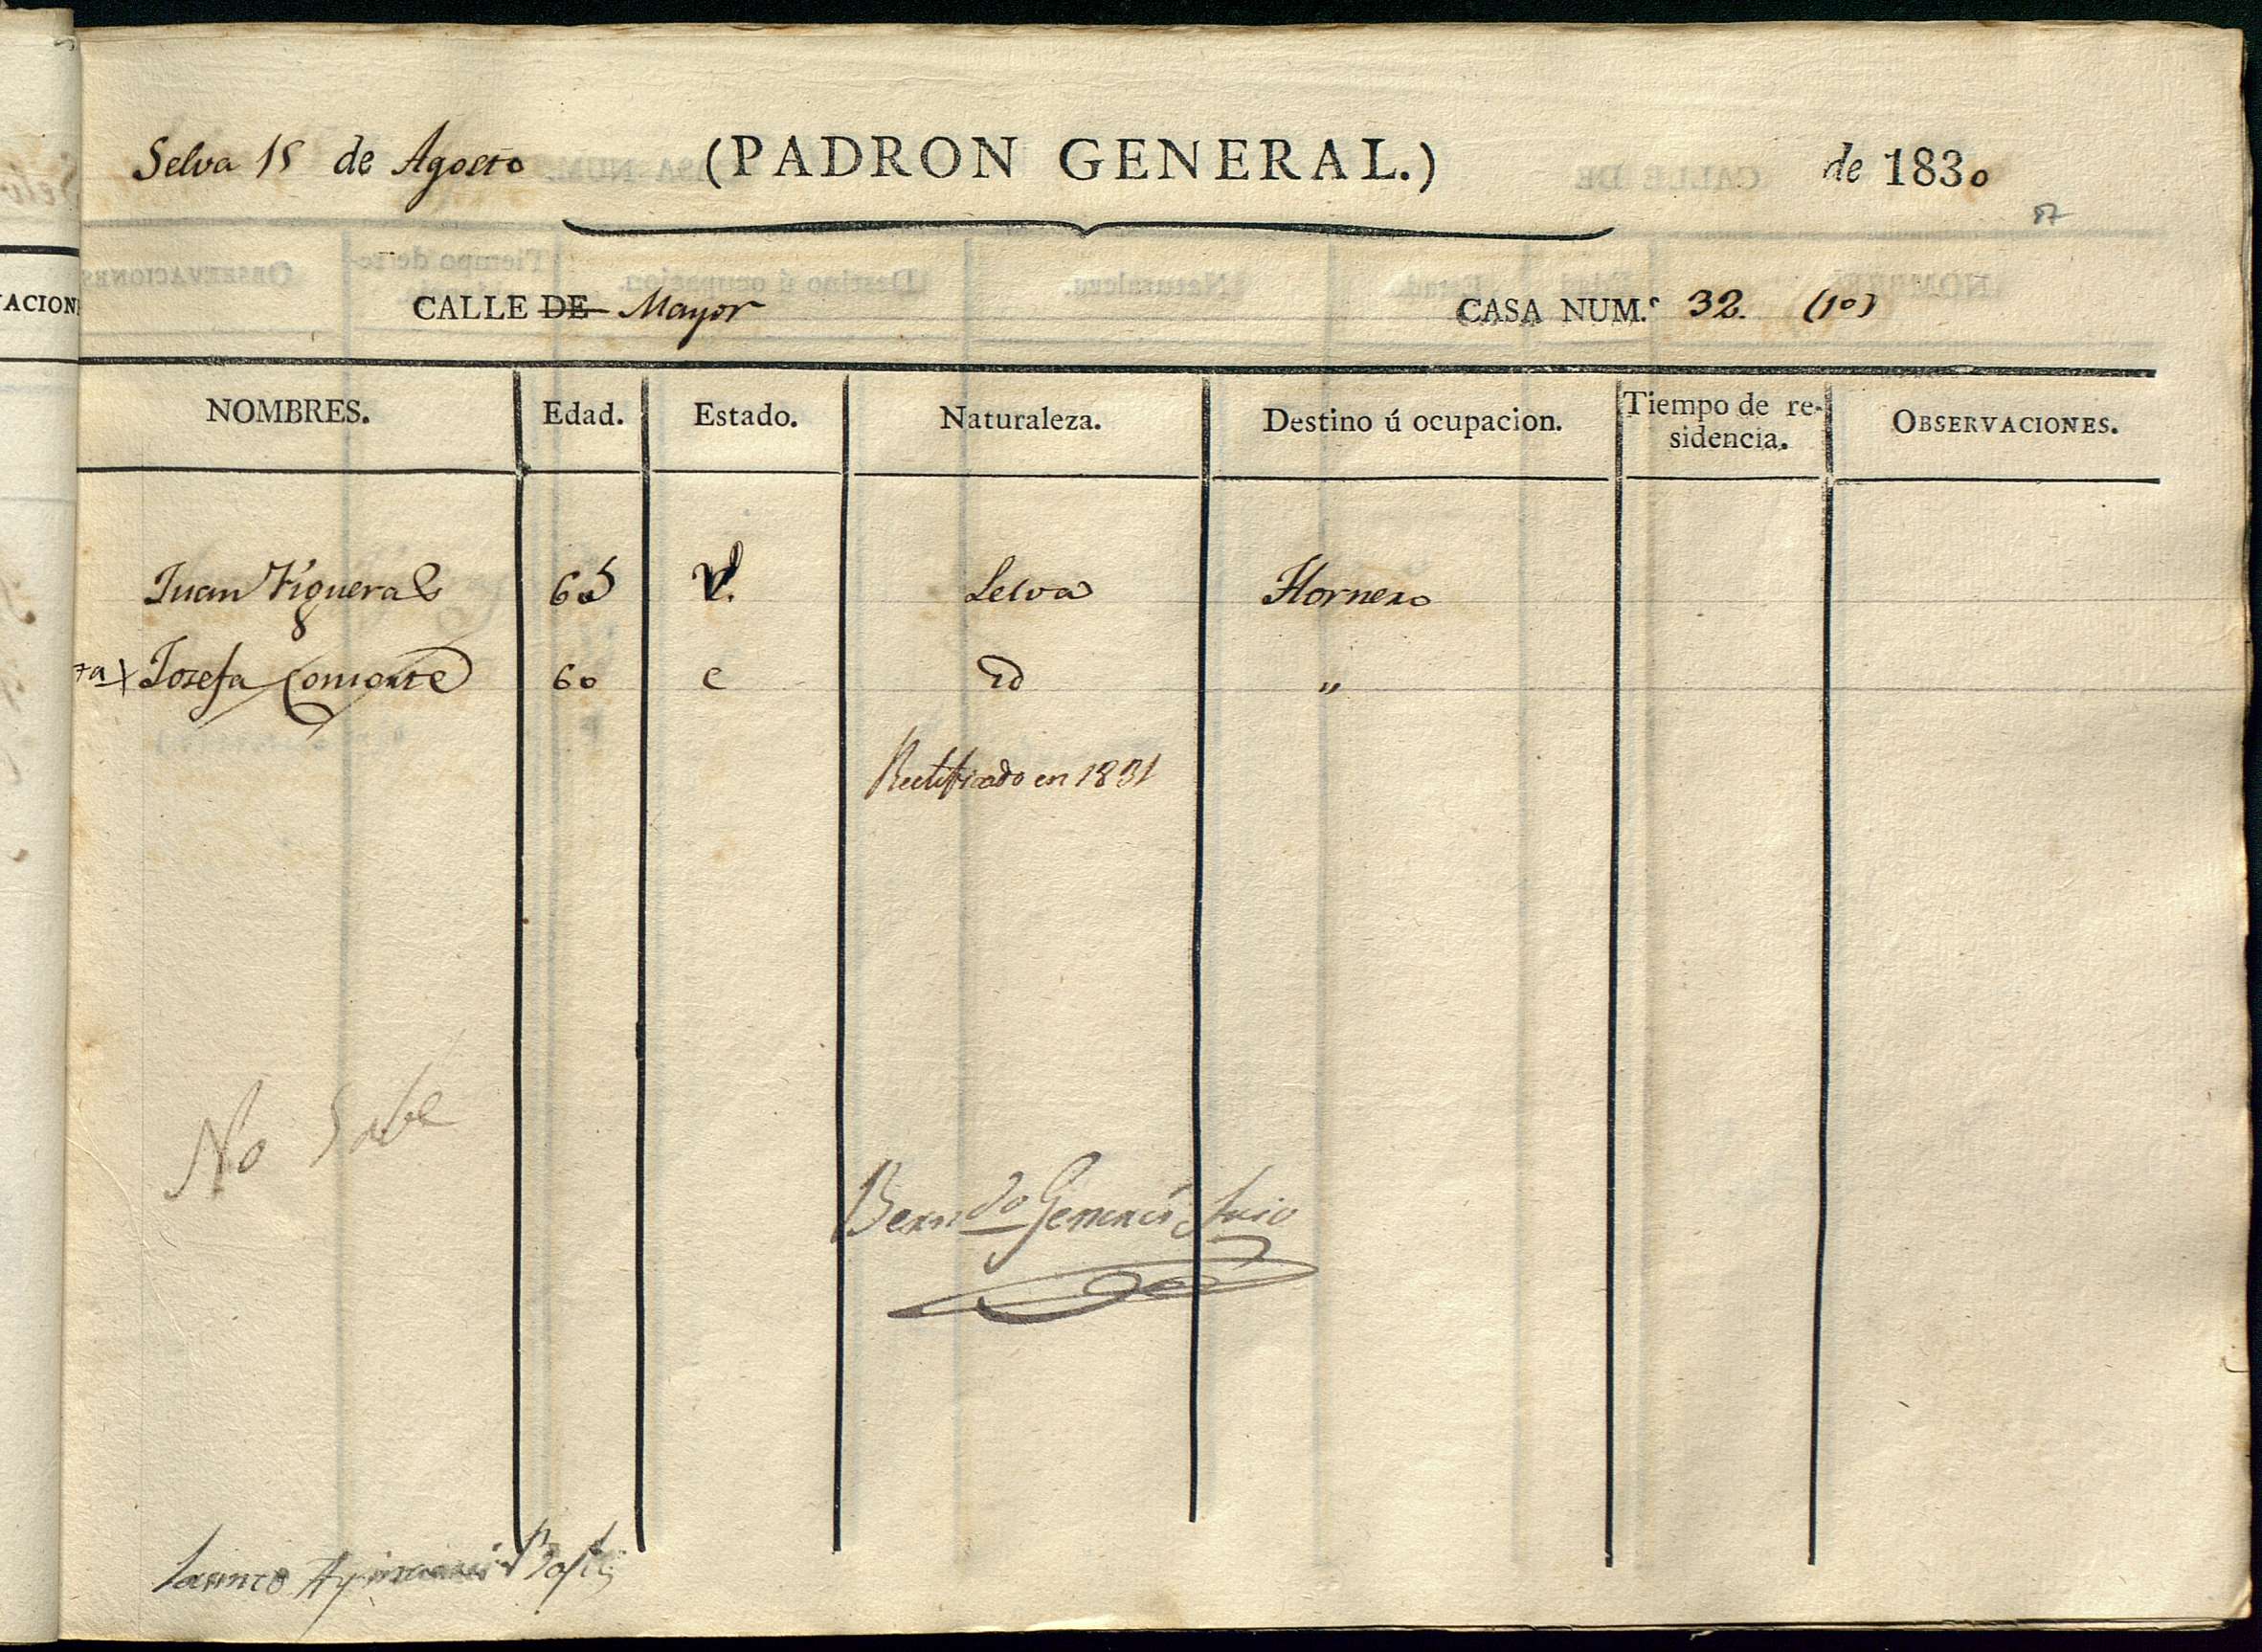 Selva 15 de Agosto (PADRON GENERAL.) de 1830
87
CALLE DE Mayor CASA NUM.º 32. (10)
ACION
NOMBRES. Edad. Estado. Naturaleza. Destino ú ocupacion. Tiempo de re-
sidencia. OBSERVACIONES.
Juan Figueral 65 V. Selva Hornero
Josefa 60 c Id "
Rectificado en 1831
No Sabe
Bern.do